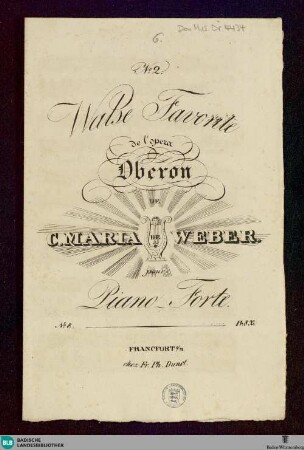 Don Mus. Dr. 4434
6.
No. 2.
Walse Favorite
de l'opera
Oberon
de
C. MARIA WEBER.
pour
Piano-Forte.
No. 8.
Pr. 8 X.
FRANCFORT s/m
chez Fr. Ph. Dunst.
BLB BADISCHE LANDESBIBLIOTHEK
Baden-Württemberg